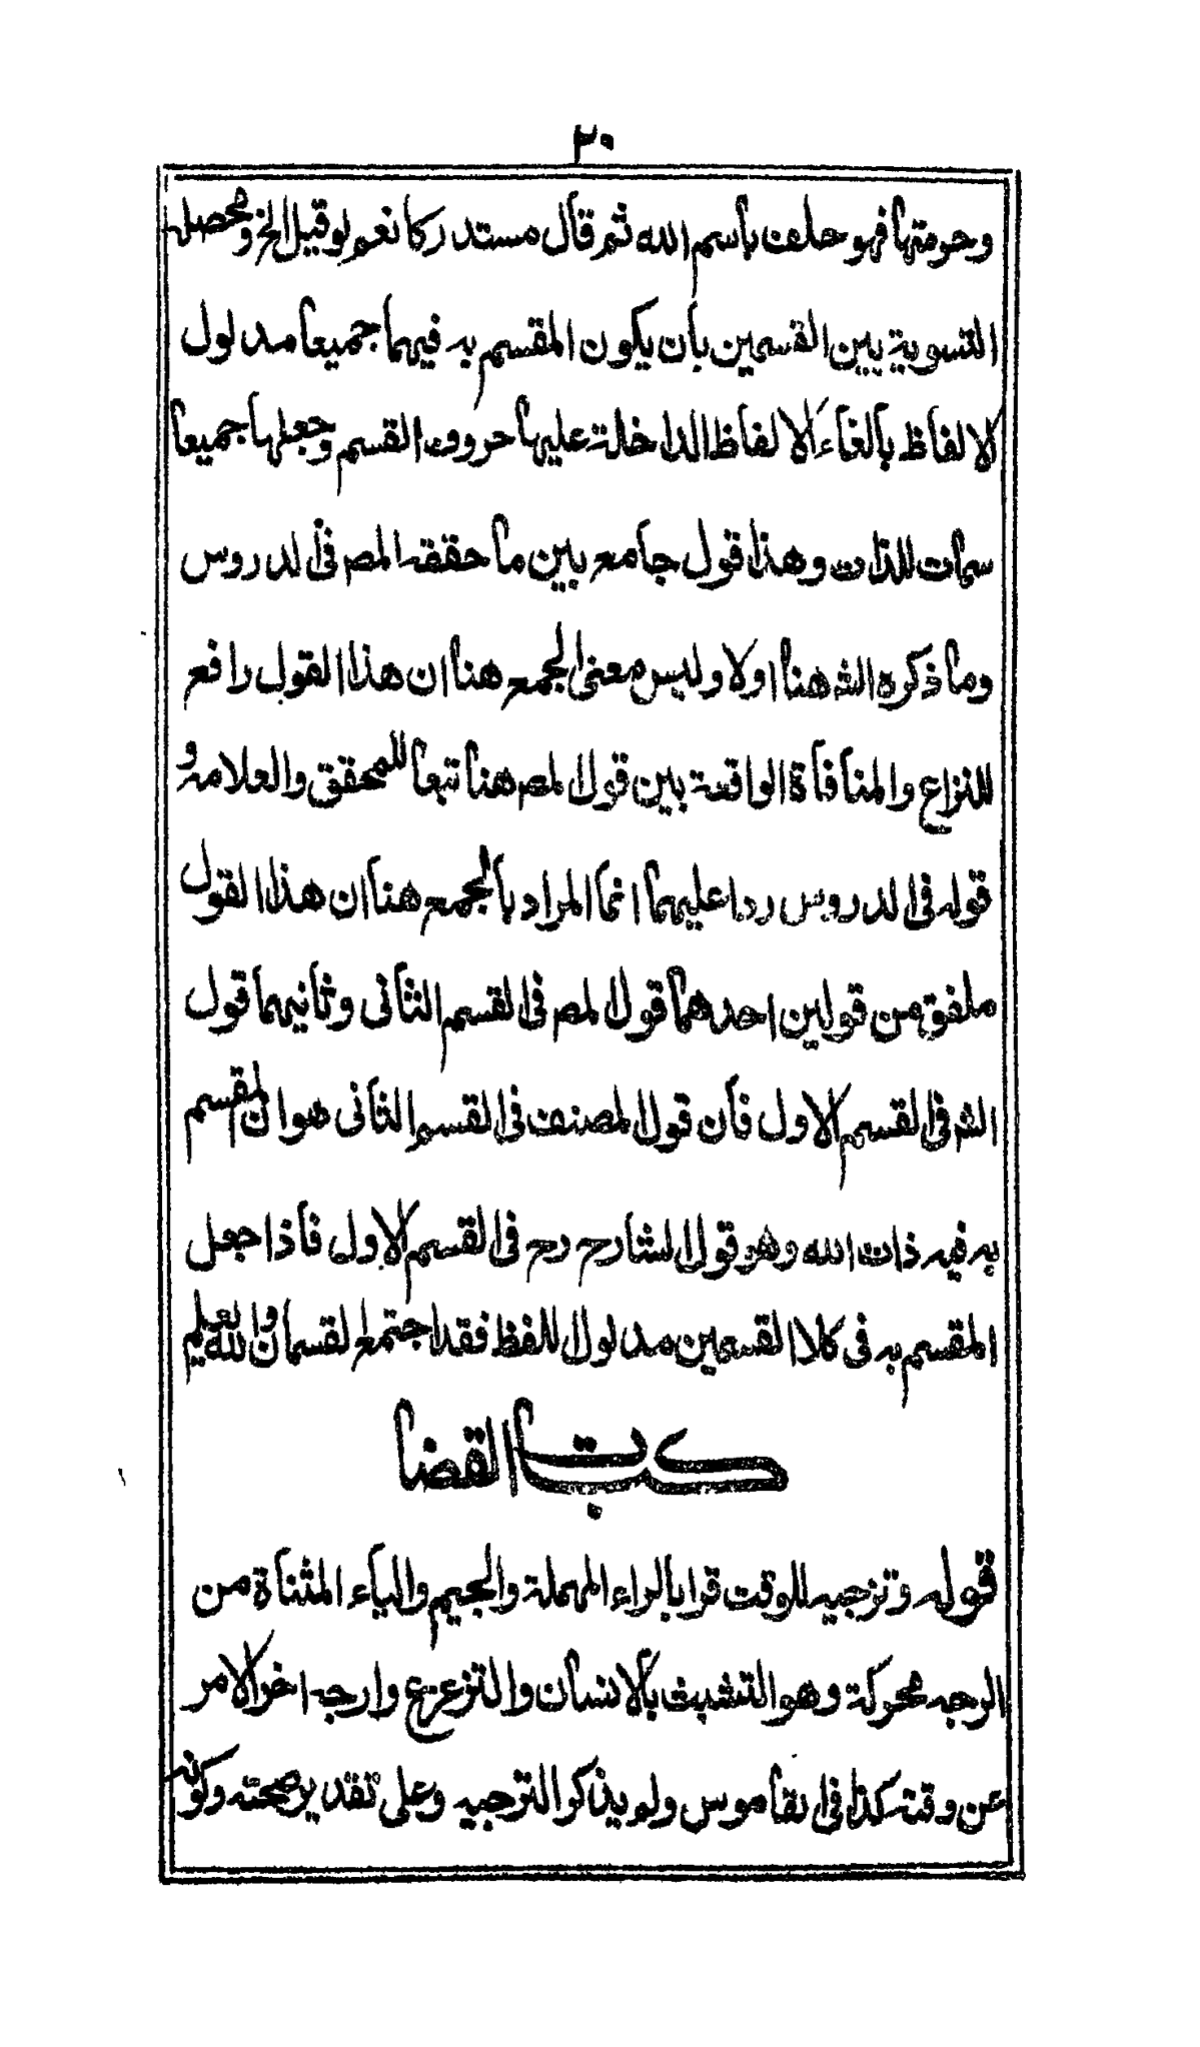 ٢٠
وحرمتها فهو حلف باسم الله ثم قال مستدركا نعم لو قيل الخ ومحصله
التسوية بين القسمين بأن يكون المقسم به فيهما جميعا مدلول
الالفاظ بالغاء الالفاظ الداخلة عليها حروف القسم وجعلها جميعا
سمات للذات وهذا قول جامع بين ما حققه المص فى الدروس
وما ذكره الشه هنا اولا وليس معنى الجمع هنا ان هذا القول رافع
للنزاع والمنافاة الواقعة بين قول المص هنا تبعا للمحقق والعلامه و
قوله فى الدروس ردا عليهما انما المراد بالجمع هنا ان هذا القول
ملفق من قولين احدهما قول المص فى القسم الثانى وثانيهما قول
الشه فى القسم الاول فان قول المصنف فى القسم الثانى هو ان المقسم
به فيه ذات الله وهو قول الشارح رح فى القسم الاول فاذا جعل
المقسم به فى كلا القسمين مدلول اللفظ فقد اجتمع القسمان والله يعلم
كتاب القضا
قوله وترجيه للوقت قرا بالراء المهملة والجيم والياء المثناة من
الرجه محركة وهو التشبث بالانسان والتزعزع وارجه اخر الامر
عن وقته كذا فى القاموس ولم يذكر الترجيه وعلى تقدير صحته وكونه